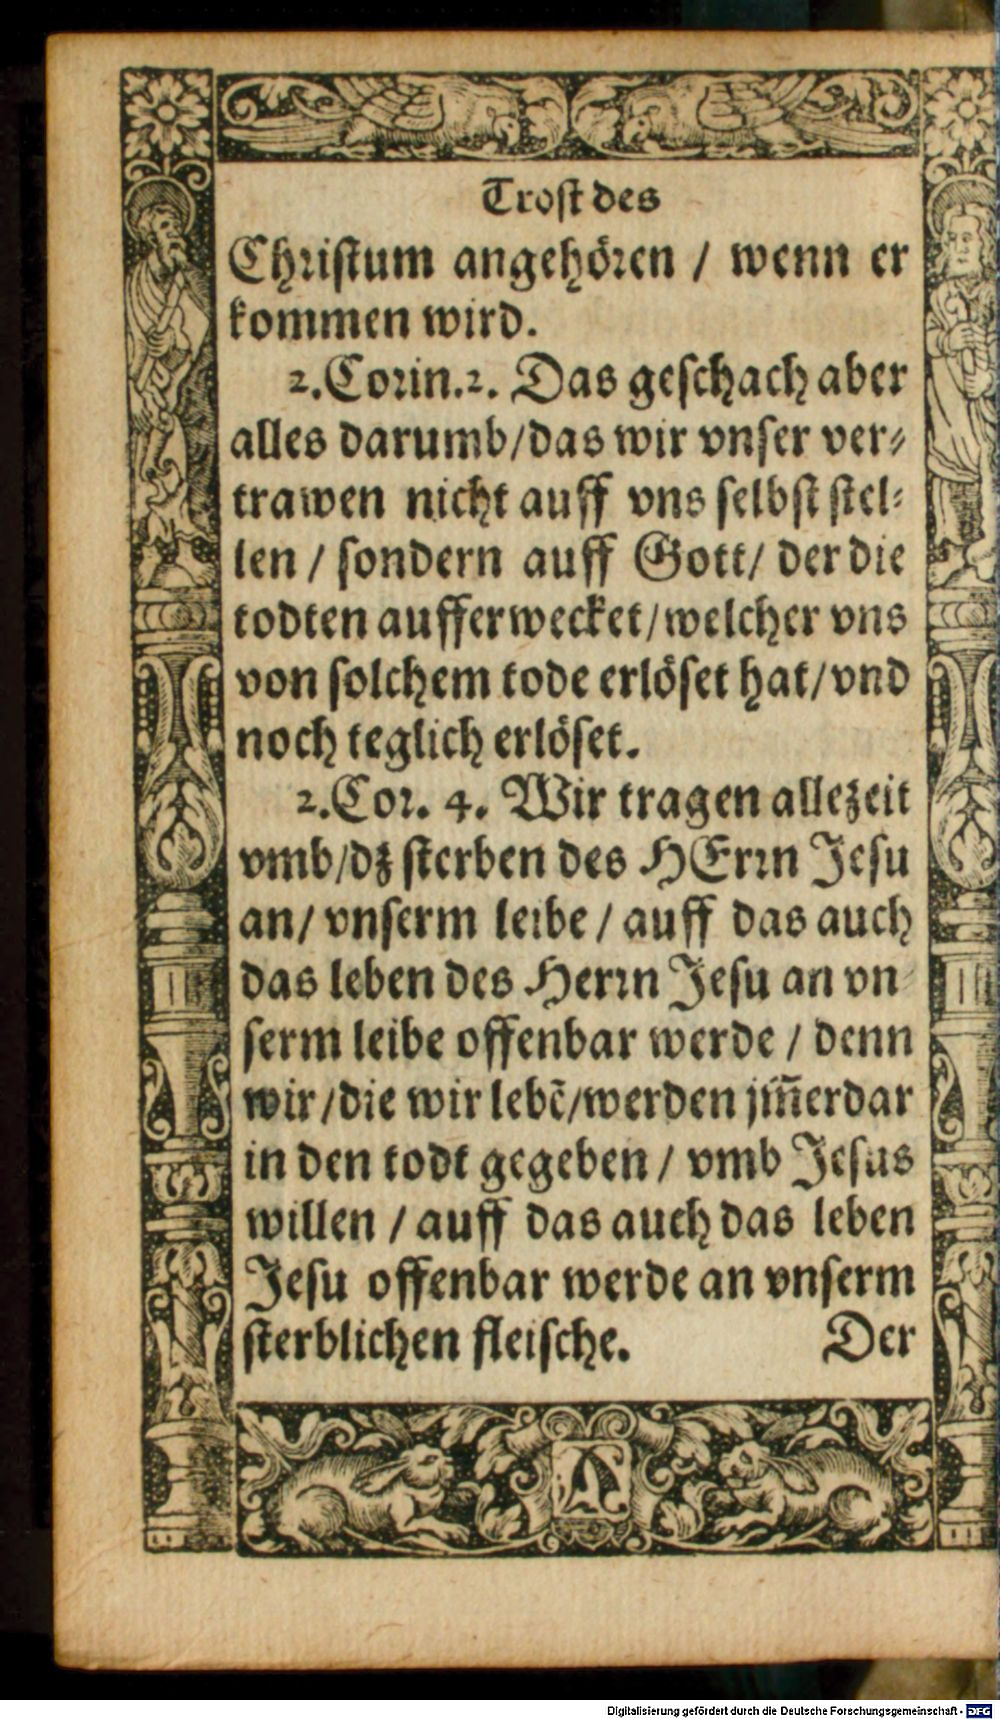 Trost des
Christum angehören / wenn er
kommen wird.
2.Corin.2. Das geschach aber
alles darumb/das wir vnser ver-
trawen nicht auff vns selbst stel-
len / sondern auff Gott/ der die
todten aufferwecket/welcher vns
von solchem tode erlöset hat/vnd
noch teglich erlöset.
2.Cor. 4. Wir tragen allezeit
vmb/dz sterben des HErrn Jesu
an/ vnserm leibe / auff das auch
das leben des Herrn Jesu an vn-
serm leibe offenbar werde / denn
wir/die wir lebē/werden jm̄erdar
in den todt gegeben / vmb Jesus
willen / auff das auch das leben
Jesu offenbar werde an vnserm
sterblichen fleische. Der
Digitalisierung gefördert durch die Deutsche Forschungsgemeinschaft - DFG